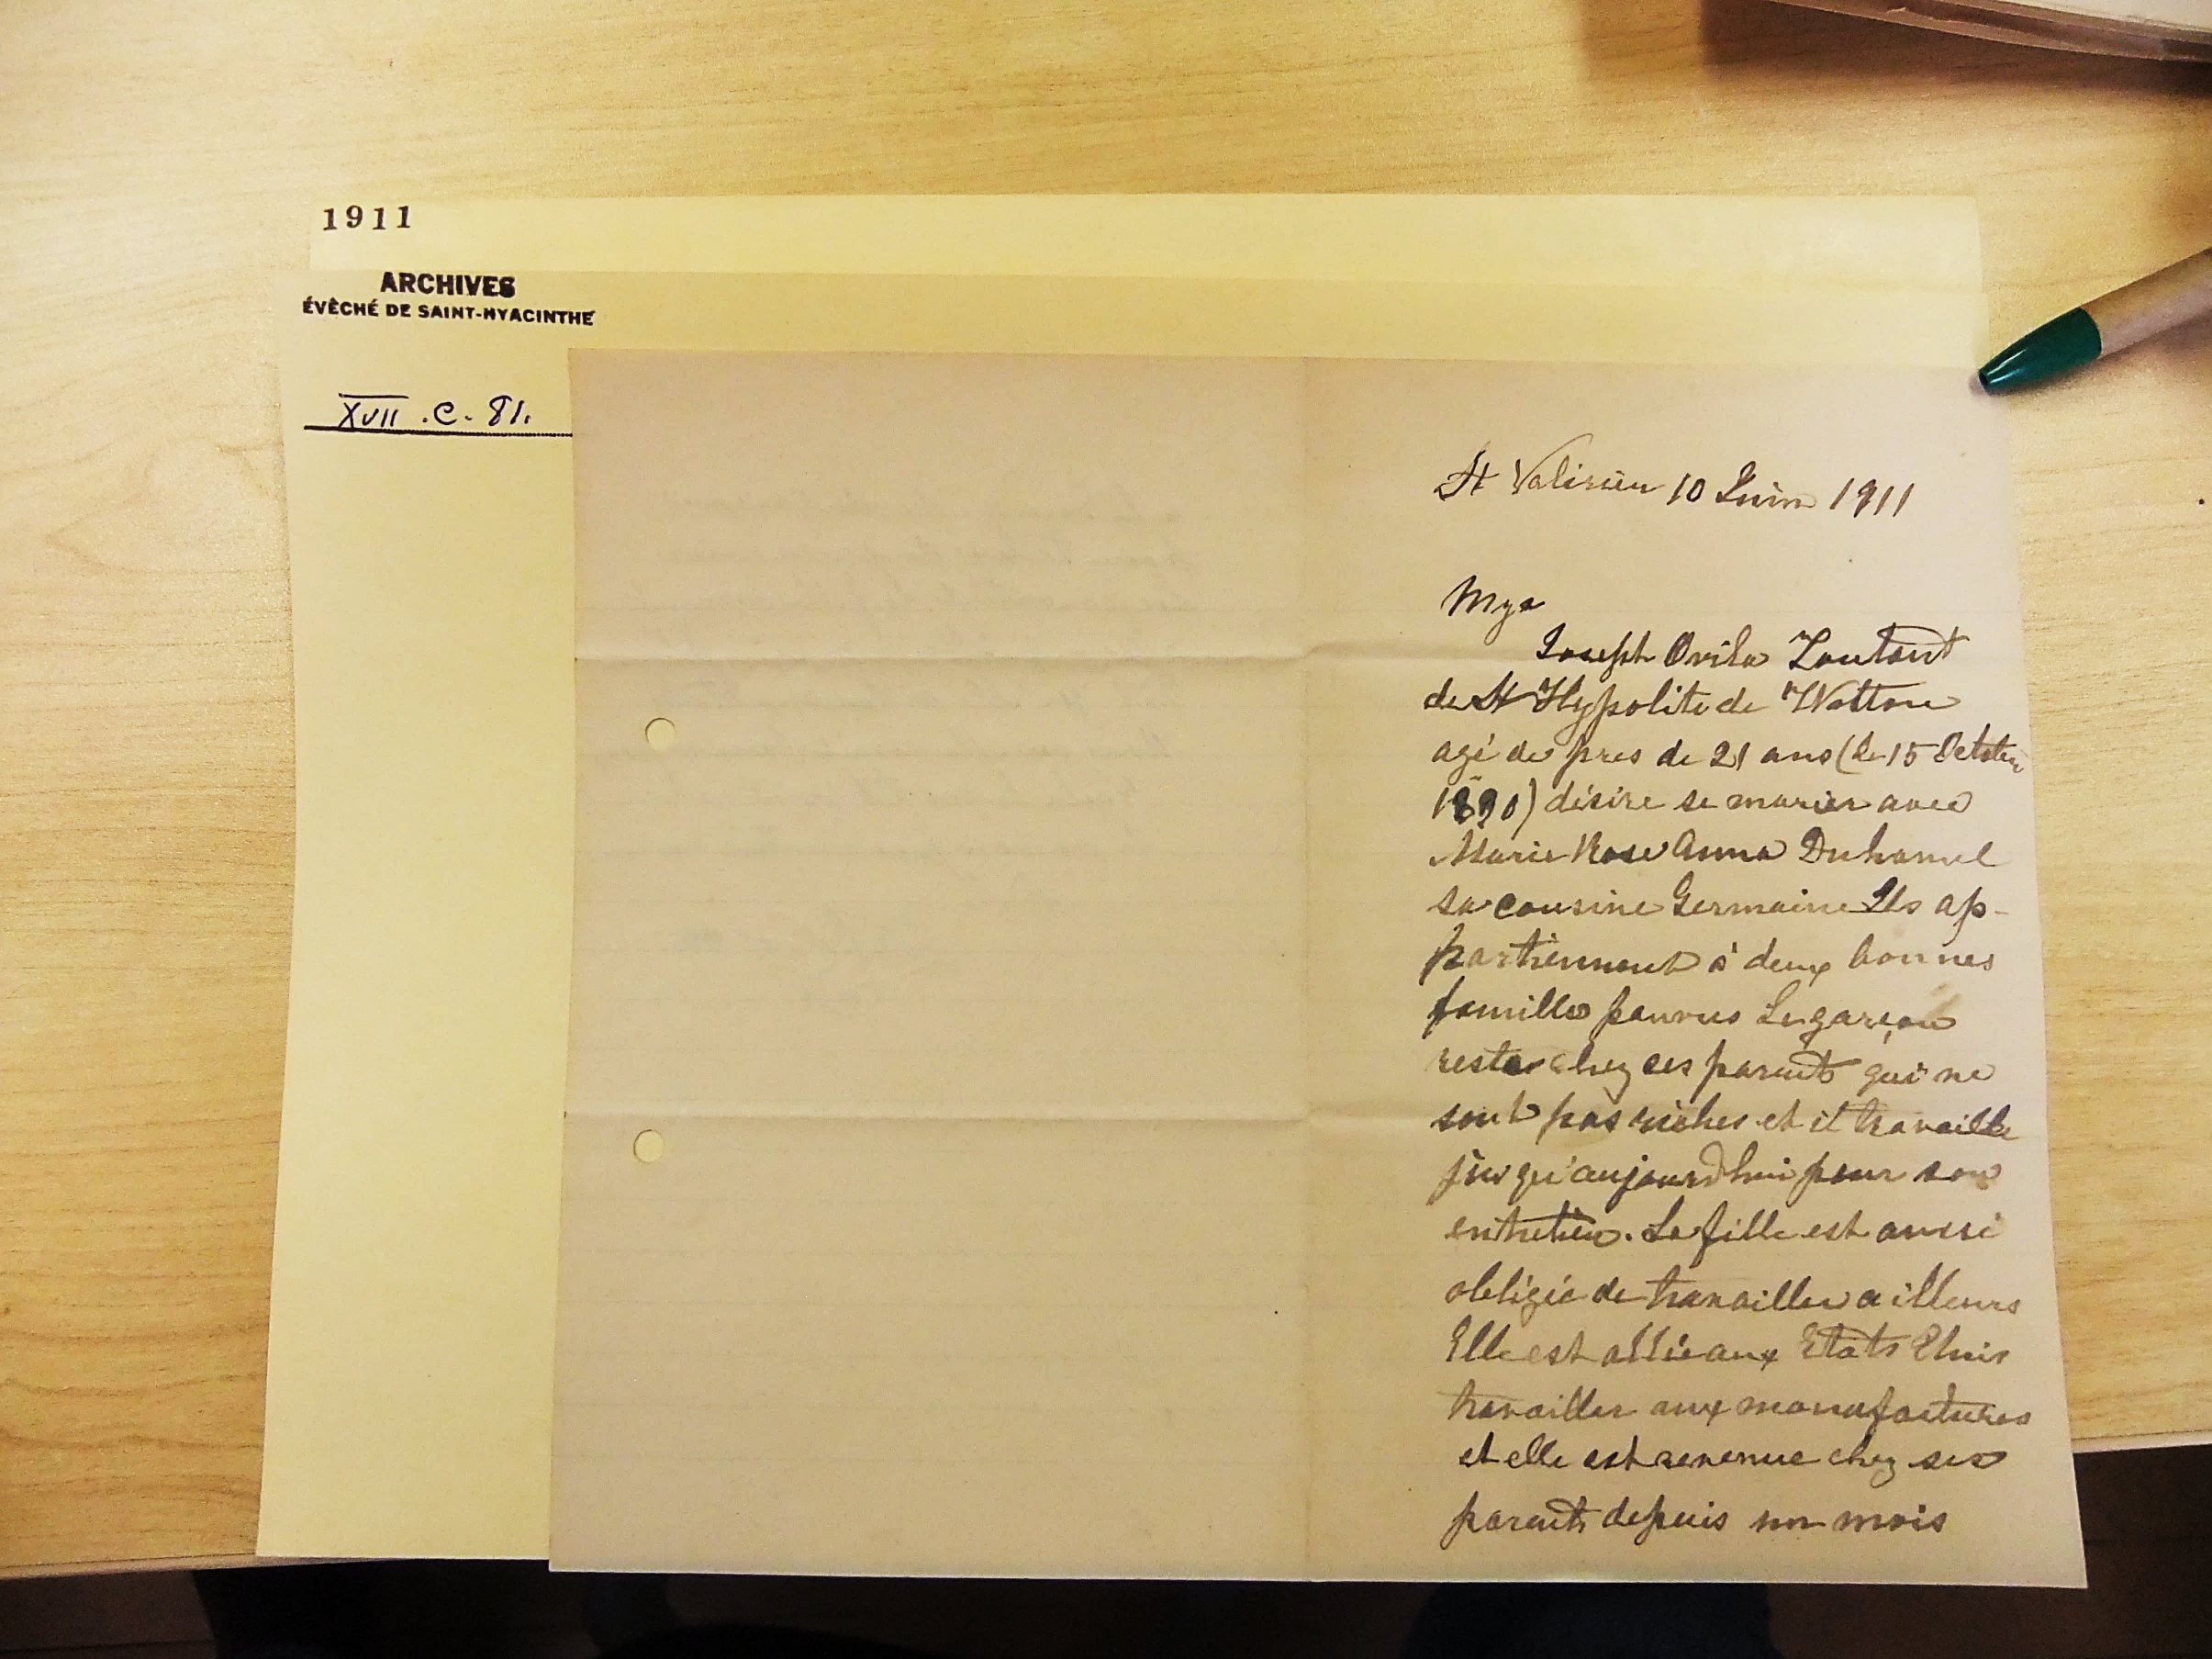 1911
ARCHIVES
ÉVÊCHÉ DE SAINT-HYACINTHE
XVII .C. 81.
St Valérien 10 Juin 1911
Mgr
Joseph Ovila Loutant
de St Hypolite de Wotton
agé de pres de 21 ans (le 15 Octobre
1890) désire se marier avec
Marie Rose Anna Duhamel
sa cousine Germaine Ils ap-
partiennent à deux bonnes
familles pauvres Le garçon
reste chez ses parents qui ne
sont pas riches et il travaille
jusqu'aujourd'hui pour son
entretien. La fille est aussi
obligée de travailler ailleurs
Elle est allée aux Etats Unis
travailler aux manufactures
et elle est revenue chez ses
parents depuis un mois